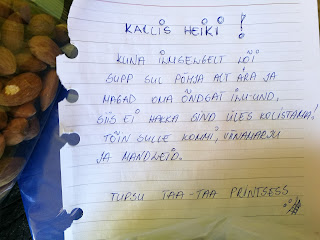 KALLIS HEIKI!
KUNA ILMSELGELT LÕI
SUPP SUL PÕHJA ALT ÄRA JA
MAGAD OMA ÕNDSAT ILU-UND,
SIIS EI HAKKA SIND ÜLES KOLISTAMA!
TÕIN SULLE KOMMI, VIINAMARJU
JA MANDLEID.
TUPSU TAA-TAA PRINTSESS